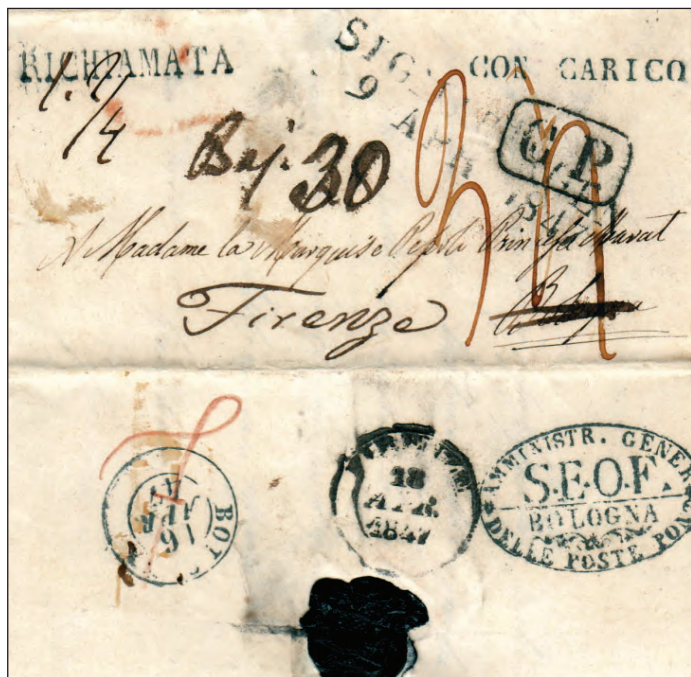 RICHIAMATA
CON CARICO
9 APR
C.P.
Baj. 30
A Madame la Marquise Pepoli Princesse Murat
Firenze
Bologna
16
APR
47
BOL
18
APR.
1847
AMMINISTR. GENER
S.E.O.F.
BOLOGNA
DELLE POSTE PON